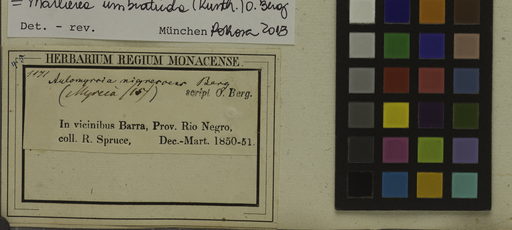 = Marlierea umbraticola (Kunth.) O. Berg
Det. - rev. München 2013
HERBARIUM REGIUM MONACENSE.
1171
Aulomyrcia nigrescens Berg
(Myrcia 157) scripl. O. Berg.
In vicinibus Barra, Prov. Rio Negro,
coll. R. Spruce, Dec.-Mart. 1850-51.